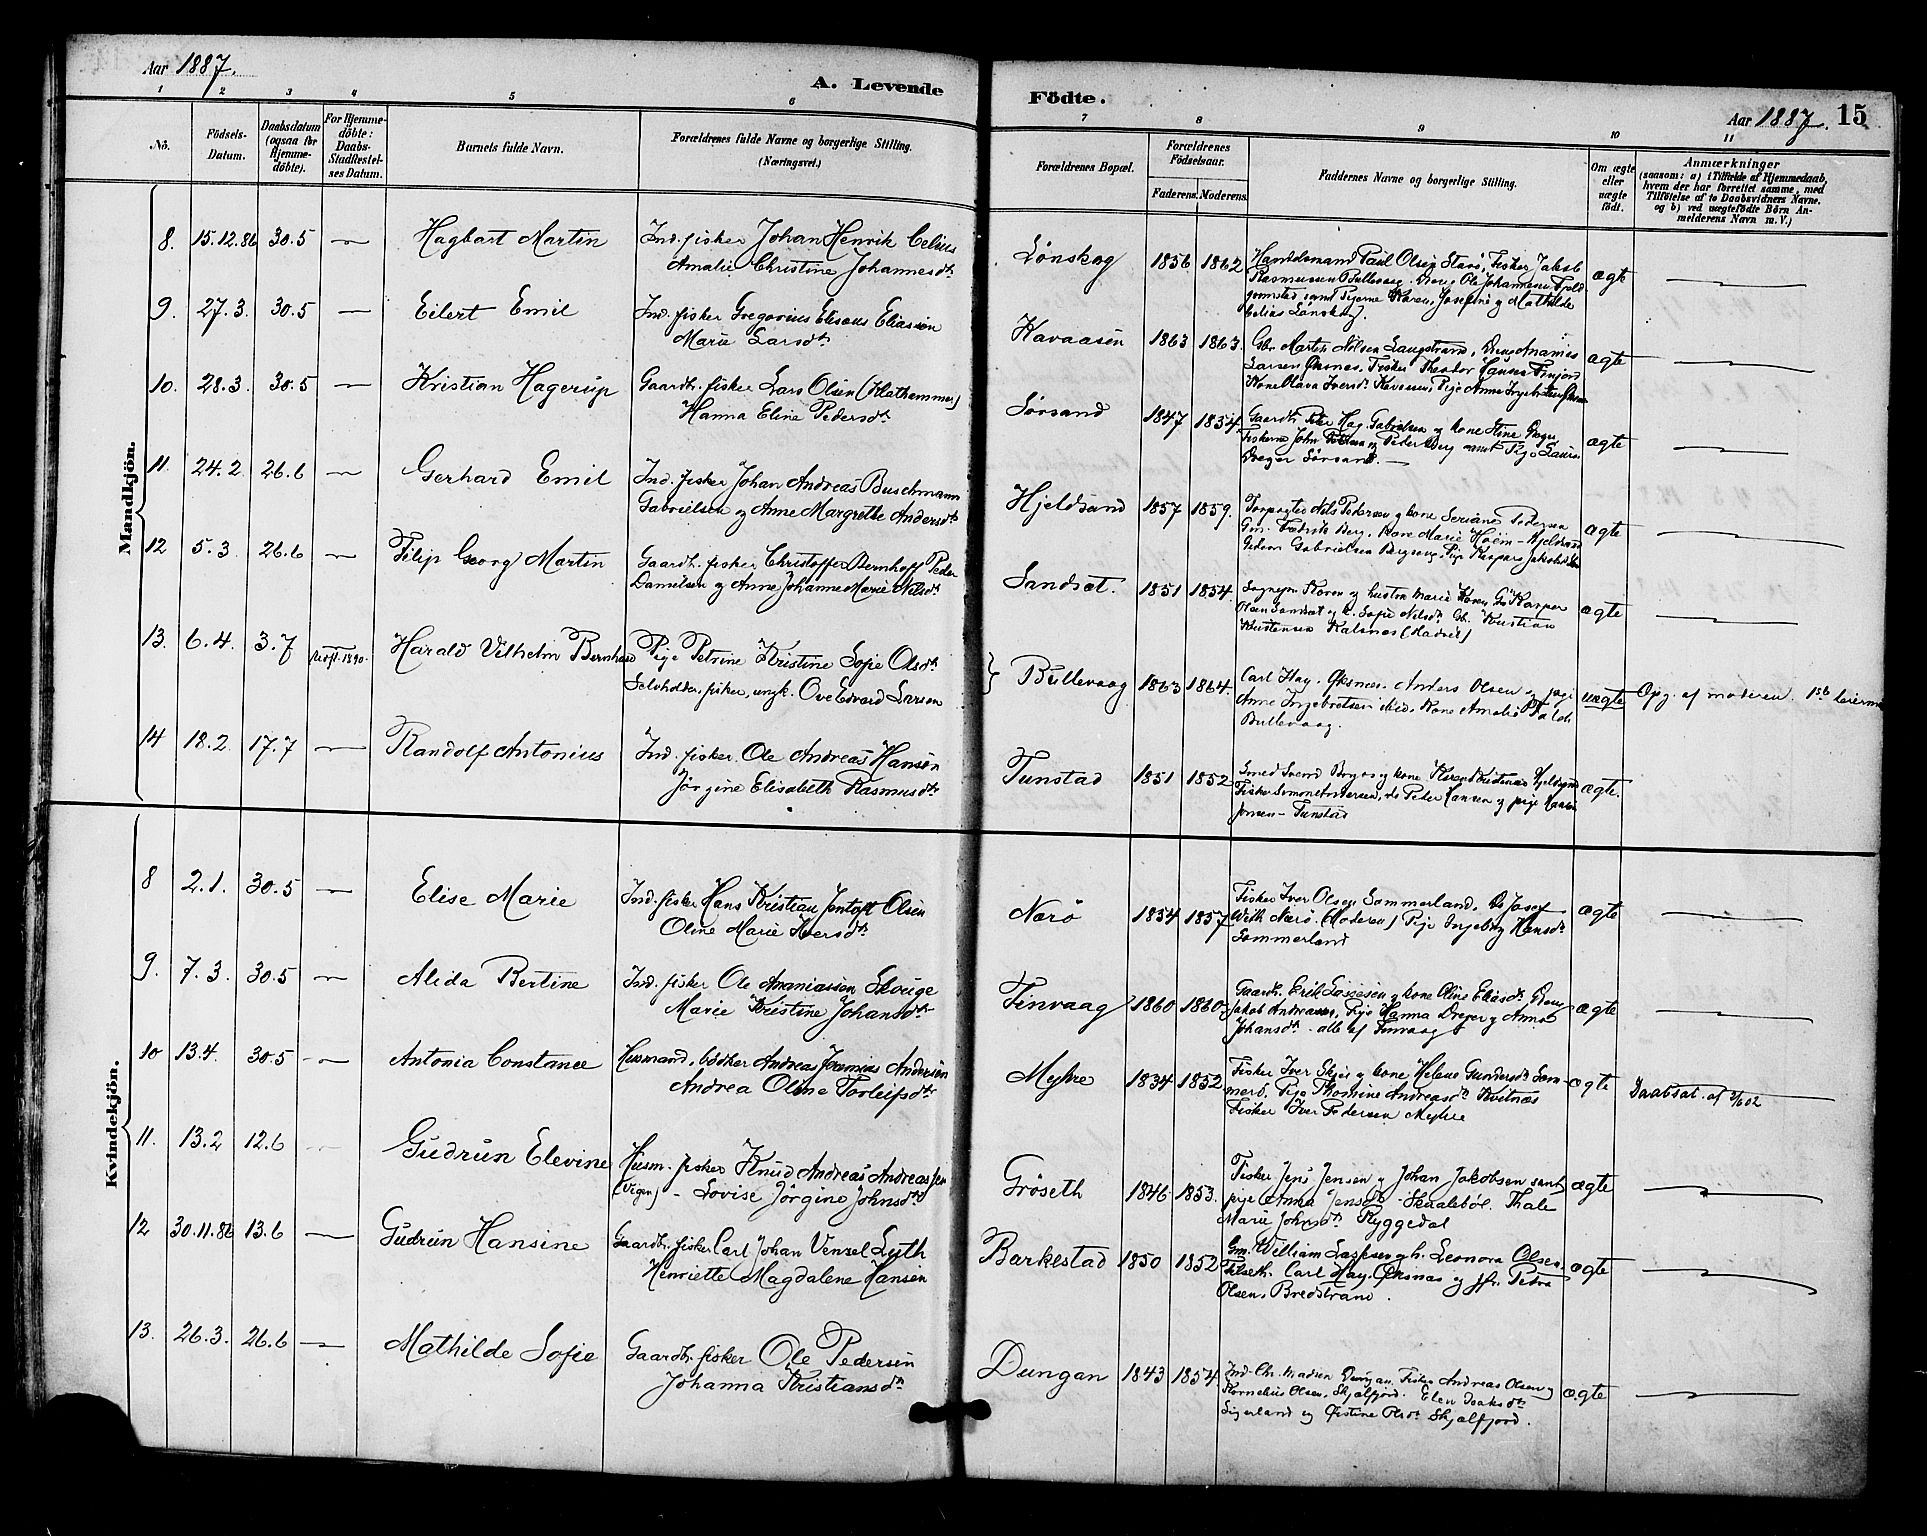 Aar 1887.
A. Levende
Födte.
Aar 1887. 15
1 2 3 4 5 6 7 8 9 10 11
Nö.
Födsels-Datum.
Daabsdatum (ogsaa for Hjemme-döbte).
For Hjemme-döbte: Daabs-Stadfæstel-ses Datum.
Barnets fulde Navn.
Forældrenes fulde Navne og borgerlige Stilling.
(Næringsvei.)
Forældrenes Bopæl.
Forældrenes Födselsaar.
Faderens. Moderens.
Faddernes Navne og borgerlige Stilling.
Om ægte eller uægte födt.
Anmærkninger
(saasom: a) i Tilfælde af Hjemmedaab, hvem der har forrettet samme, med Tilföielse af to Daabsvidners Navne, og b) ved uægtefödte Börn An-melderens Navn m. V.)
Mandkjön.
8. 15.12.86 30.5 — Hagbart Martin
Ind. fisker Johan Henrik Celius
Amalie Christine Johannesdtr
Lönskog 1856 1862
Handelsmand Paul Olsen Starö, Fisker Jakob
Rasmussen Bullevaag. Dreng Ole Johannesen
samt Pigerne Karen, Josefine og Mathilde
Celius Lönskog.
ægte
9. 27.3. 30.5 — Eilert Emil
Ind. fisker Gregorius Elisæus Eliassen
Marie Larsdtr
Kavaasen 1863 1863.
Gbr. Martin Nilsen Langstrand, Dreng Ananias
Larsen Öksnes, Fisker Theodor Hansen Finjord
Kone Olava Iversdtr Kavaasen, Pige Anne
ægte
10. 28.3. 30.5 — Kristian Hagerup
Gaardbr. fisker Lars Olsen (Klethammer)
Hanna Eline Pedersdtr
Sörsand 1847 1854.
Gaardbr. Peter Hag. Gabrielsen og kone Stine Dreyer
Fiskerne John og Peder Berg samt Pige Laura
Dreyer Sörsand. —
ægte
11. 24.2. 26.6 — Gerhard Emil
Ind. fisker Johan Andreas Buschmann
Gabrielsen og Anne Margrethe Andersdtr
Hjeldsand 1857 1859.
Forpagter Nils Pedersen og kone Seriane Pedersen
Gm. Fredrik Berg, Kone Marie Höim - Hjeldsand
Gedion Gabrielsen, Pige Kaspara
ægte
12 5.3. 26.6 — Filip Georg Martin
Gaardbr. fisker Christoffer Bernhoff Peder
Danielsen og Anne Johanne Marie Nilsdtr
Sandset. 1851 1854.
Sognepr. Koren og hustru Marie Koren, Gb. Kasper
Olsen Sandset og k. Sofie Nilsdtr Gb. Kristian
Kristensen Kalsnes (Hadsel)
ægte
13. 6.4. 3.7 Udst. 1890. Harald Vilhelm Bernhard
Pige Petrine Kristine Sofie Olsdtr
Selvholden, fisker, ungk. Ove Edvard Larsen
} Bullevaag 1863 1864.
Carl Hay. Öksnes. Anders Olsen og pige
Anne Ingebretsen ibid. Kone Amalie
Bullevaag.
uægte
Opg. af moderen. 1ste leiermaal
14 18.2. 17.7 — Randolf Antonius
Ind. fisker Ole Andreas Hansen
Jörgine Elisabeth Rasmusdtr
Tunstad 1851 1852
Smed Svend Bryn og kone Karen Kristensen Hjeldsand
Fisker Simon Andersen, do Peder Hansen og pige Hansine
Jensen - Tunstad
ægte.
Kvindekjön.
8 2.1. 30.5 — Elise Marie
Ind. fisker Hans Kristian Jentoft Olsen
Oline Marie Iversdtr
Nærö 1854 1857
Fisker Iver Olsen Sommerland. Do Josef
Wilh. Nærö. (Moderen) Pige Ingeborg Hansdtr
Sommerland
ægte
9. 7.3. 30.5 — Alida Bertine
Ind. fisker Ole Ananiassen Skoge
Marie Kristine Johansdtr
Finvaag 1860 1860
Gaardbr. Erik Lassesen og kone Oline Eliasdtr Dreng
Jakob Andreassen, Pige Hanna Dreyer og Anna
Johansdtr - alle af Finvaag
ægte
10 13.4. 30.5 — Antonia Constance
Husmand, bödker Andreas Jeremias Andersen
Andrea Oline Torleifsdtr
Myhre 1834 1852
Fisker Iver Skjei og kone Helene Gundersdtr Som-
merl. Pige Thomine Andreasdtr Kvitnæs
Fisker Iver Pedersen Myhre
ægte
Daabsat. af 3/6 02
11. 13.2 12.6 — Gudrun Elevine
Husm. fisker Knud Andreas Andreassen
(Vigen) - Lovise Jörgine Johnsdtr
Gröseth 1846 1853.
Fisker Jens Jensen og Johan Jakobsen samt
pige Anna Jensdtr - Skaaleböl. Thale
Marie Johnsdtr Ryggedal
ægte
12 30.11.86 13.6 — Gudrun Hansine
Gaardbr. fisker Carl Johan Vensel Lyth
Henriette Magdalene Hansen
Barkestad 1850 1852
Gm. William Jaspersen og h. Leonora Olsen
Tilseth. Carl Hay. Öksnæs og jfr. Petra
Olsen, Bredstrand.
ægte
13. 26.3. 26.6 — Mathilde Sofie
Gaardbr. fisker Ole Pedersen
Johanna Kristiansdtr
Dungan 1843 1854
Ind. Chr. Madsen Dungan. Fisker Andreas Olsen og
Kornelius Olsen, Skjælfjord. Elen Isaksdtr
Sigerland og Öistine Olsdtr Skjælfjord.
ægte